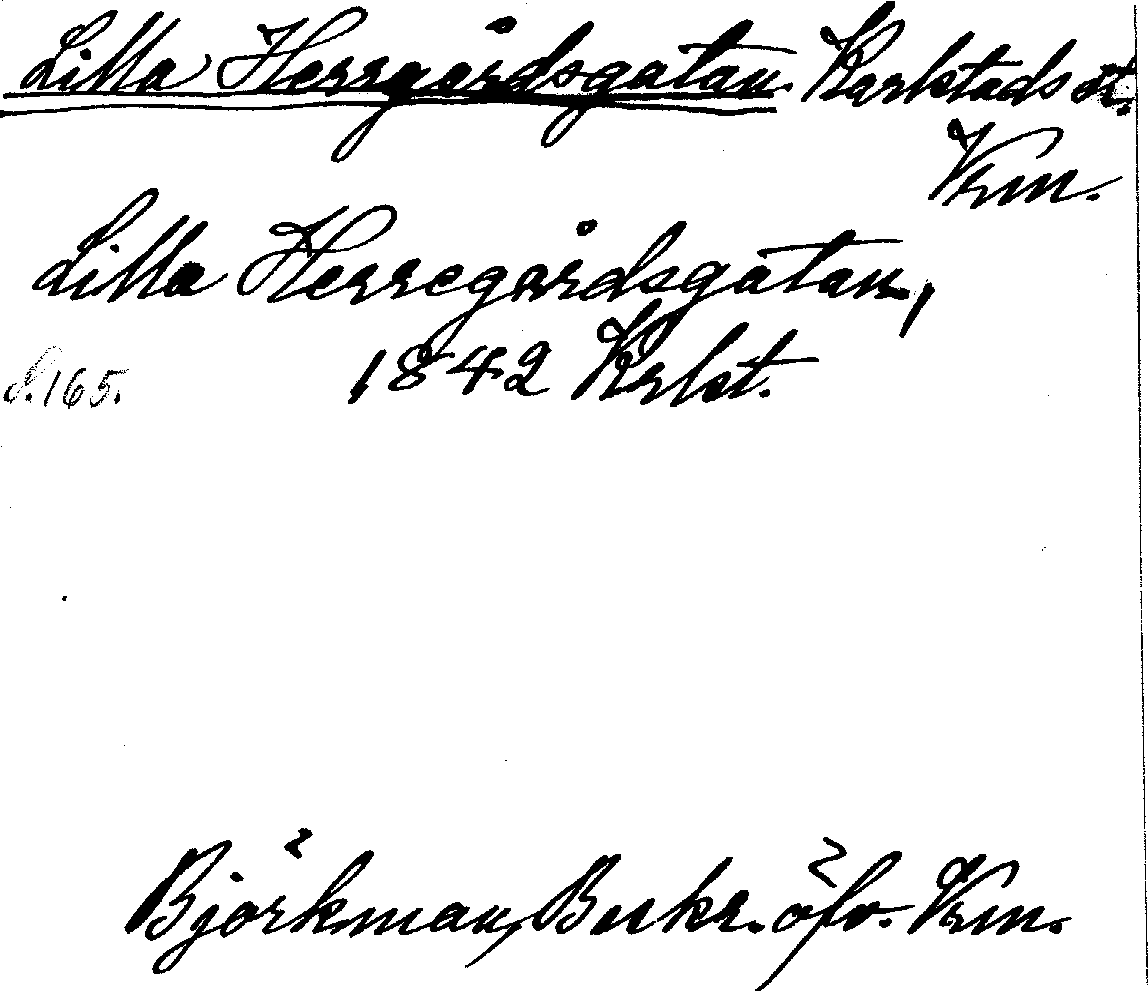 Lilla Herrgårdsgatan. Karlstads st.
Vrm.
Lilla Herregårdsgatan,
1842 Krlst.
S. 165.
Björkman, Beskr. öfv. Vrm.